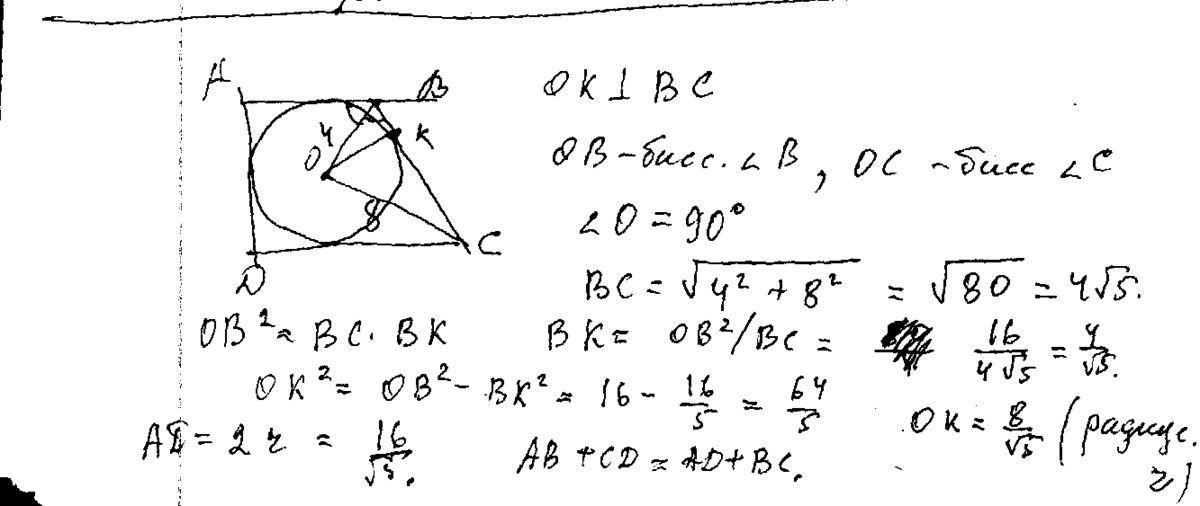 A B
OK ⊥ BC
4 K
O
OB – бисс. ∠B, OC – бисс ∠C
8
∠O = 90°
C
D
BC = √(4² + 8²) = √80 = 4√5.
OB² = BC · BK BK = OB²/BC = 16/(4√5) = 4/√5.
OK² = OB² – BK² = 16 – 16/5 = 64/5
OK = 8/√5 (радиус.
AD = 2r = 16/√5. AB + CD = AD + BC.
r)